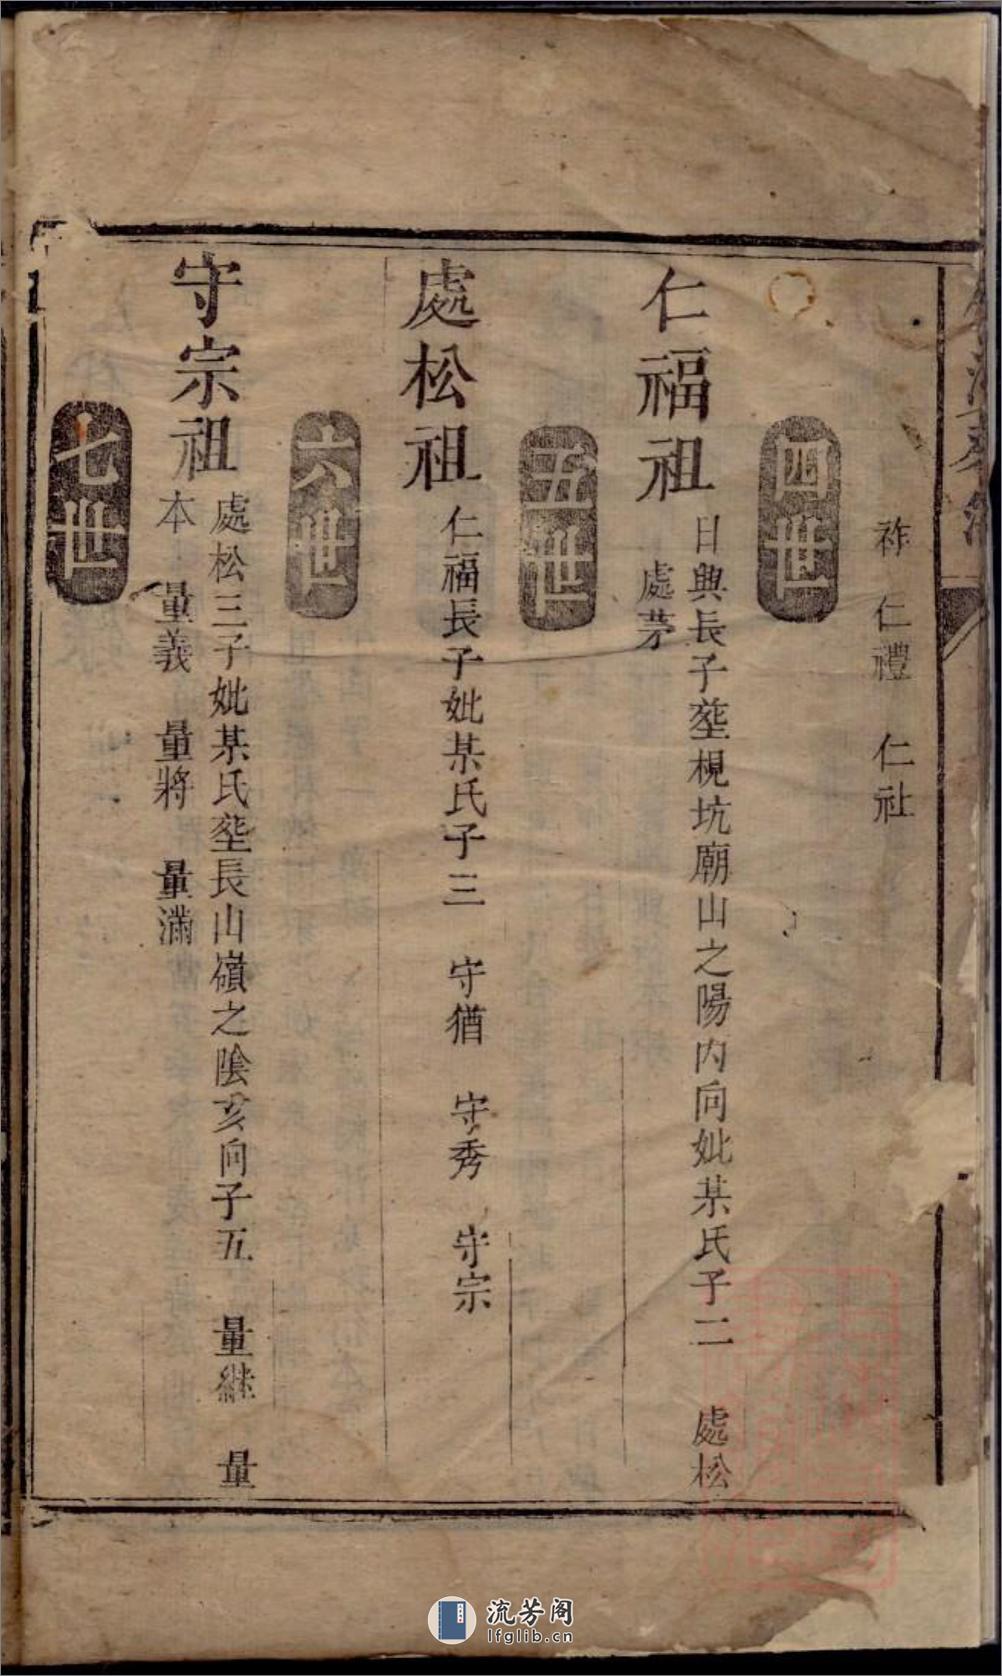 祚 仁禮 仁社
四世
仁福祖
日興長子塟梘坑廟山之陽内向妣某氏子二 處松
處茅
五世
處松祖
仁福長子妣某氏子三 守猶 守秀 守宗
六世
守宗祖
處松三子妣某氏塟長山嶺之陰亥向子五 量継 量
本 量義 量將 量滿
七世
流芳阁
lfglib.cn